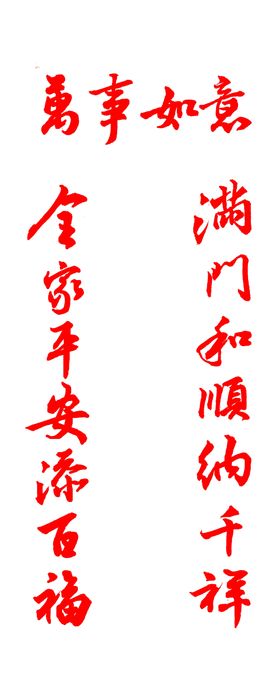 萬事如意
滿門和順納千祥
全家平安添百福